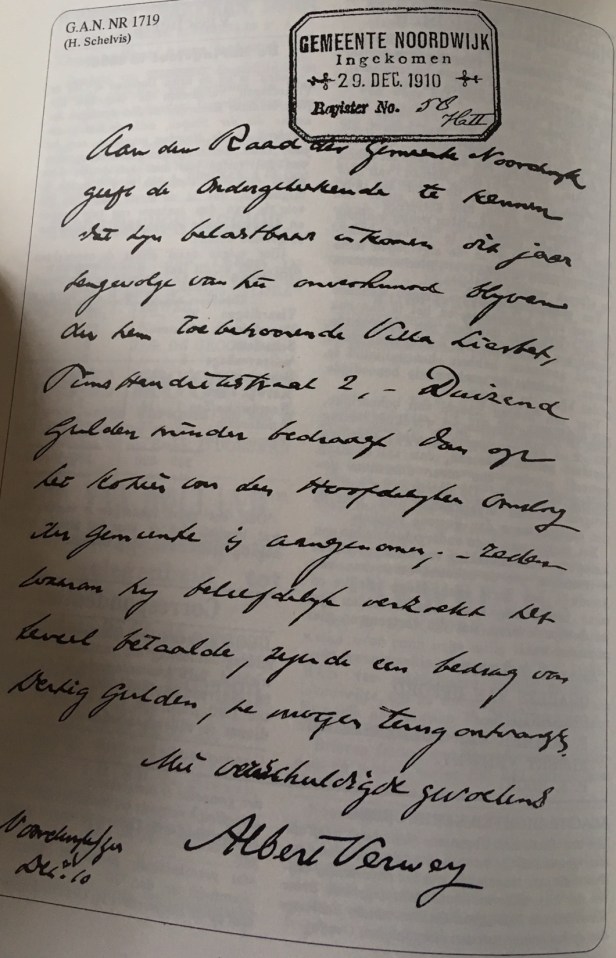 G.A.N. NR 1719
(H. Schelvis)
GEMEENTE NOORDWIJK
Ingekomen
29. DEC. 1910
Register No. 58
Aan den Raad der Gemeente Noordwijk
geeft de Ondergeteekende te kennen
dat zijn belastbaar inkomen dit jaar
tengevolge van het onverhuurd blyven
der hem toebehoorende Villa Liesbet,
Pins Hendrikstraat 2, – Duizend
Gulden minder bedraagt dan op
het Kohier van den Hoofdelyken Omslag
der Gemeente is aangenomen; – reden
waarom hy beleefdelyk verzoekt het
teveel betaalde, zynde een bedrag van
dertig Gulden, te mogen terug ontvangen.
Met verschuldigde gevoelens
Albert Verwey
Noordwijk/Zee
Dec. 10